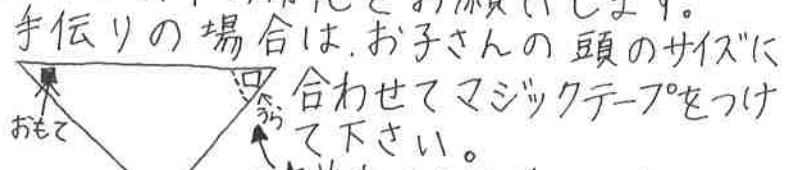 お願いします。
手伝いの場合は、お子さんの頭のサイズに
合わせてマジックテープをつけ
て下さい。
おもて
うら